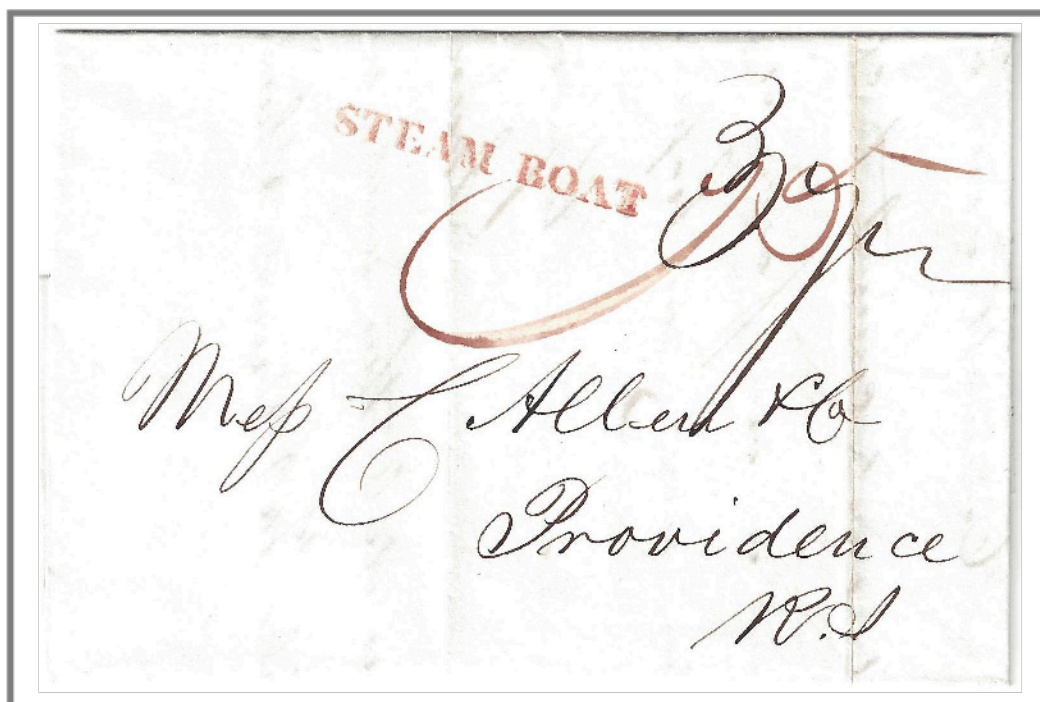 STEAM BOAT
Mess C Allen & Co
Providence
R.I